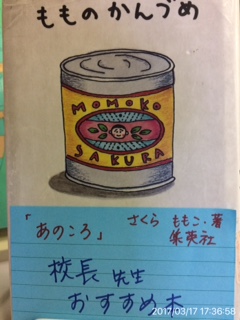 もものかんづめ
MOMOKO
SAKURA
「あのころ」
さくら ももこ・著
集英社
校長先生
おすすめ本
2017/03/17 17:36:58